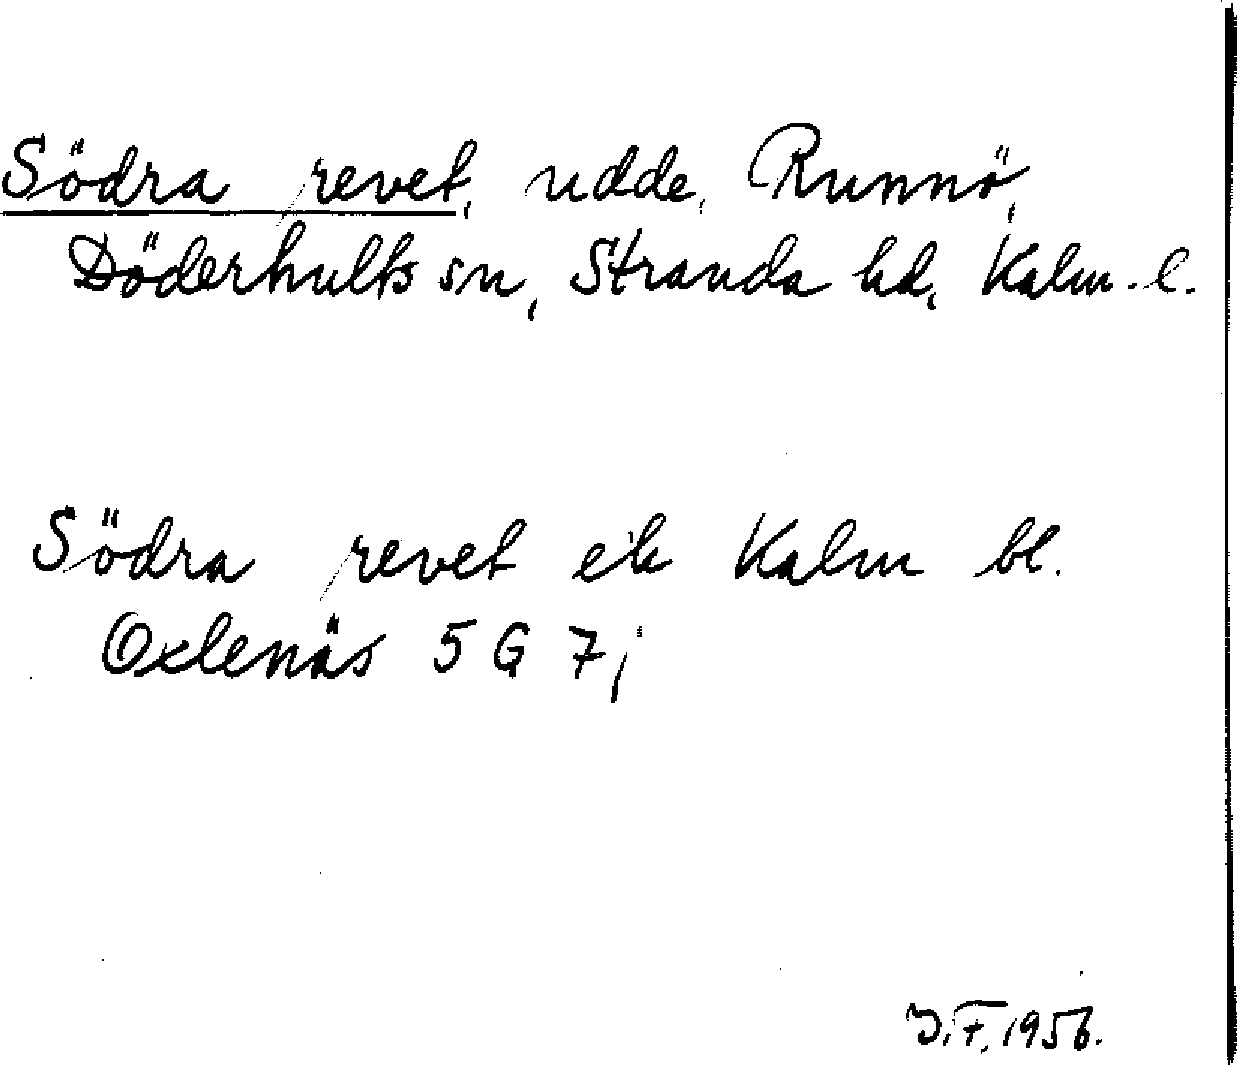 Södra revet, udde, Runnö,
Döderhults sn, Stranda hd, Kalm. l.
Södra revet ek Kalm bl.
Oxlenäs 5 G 7j
J.F. 1956.